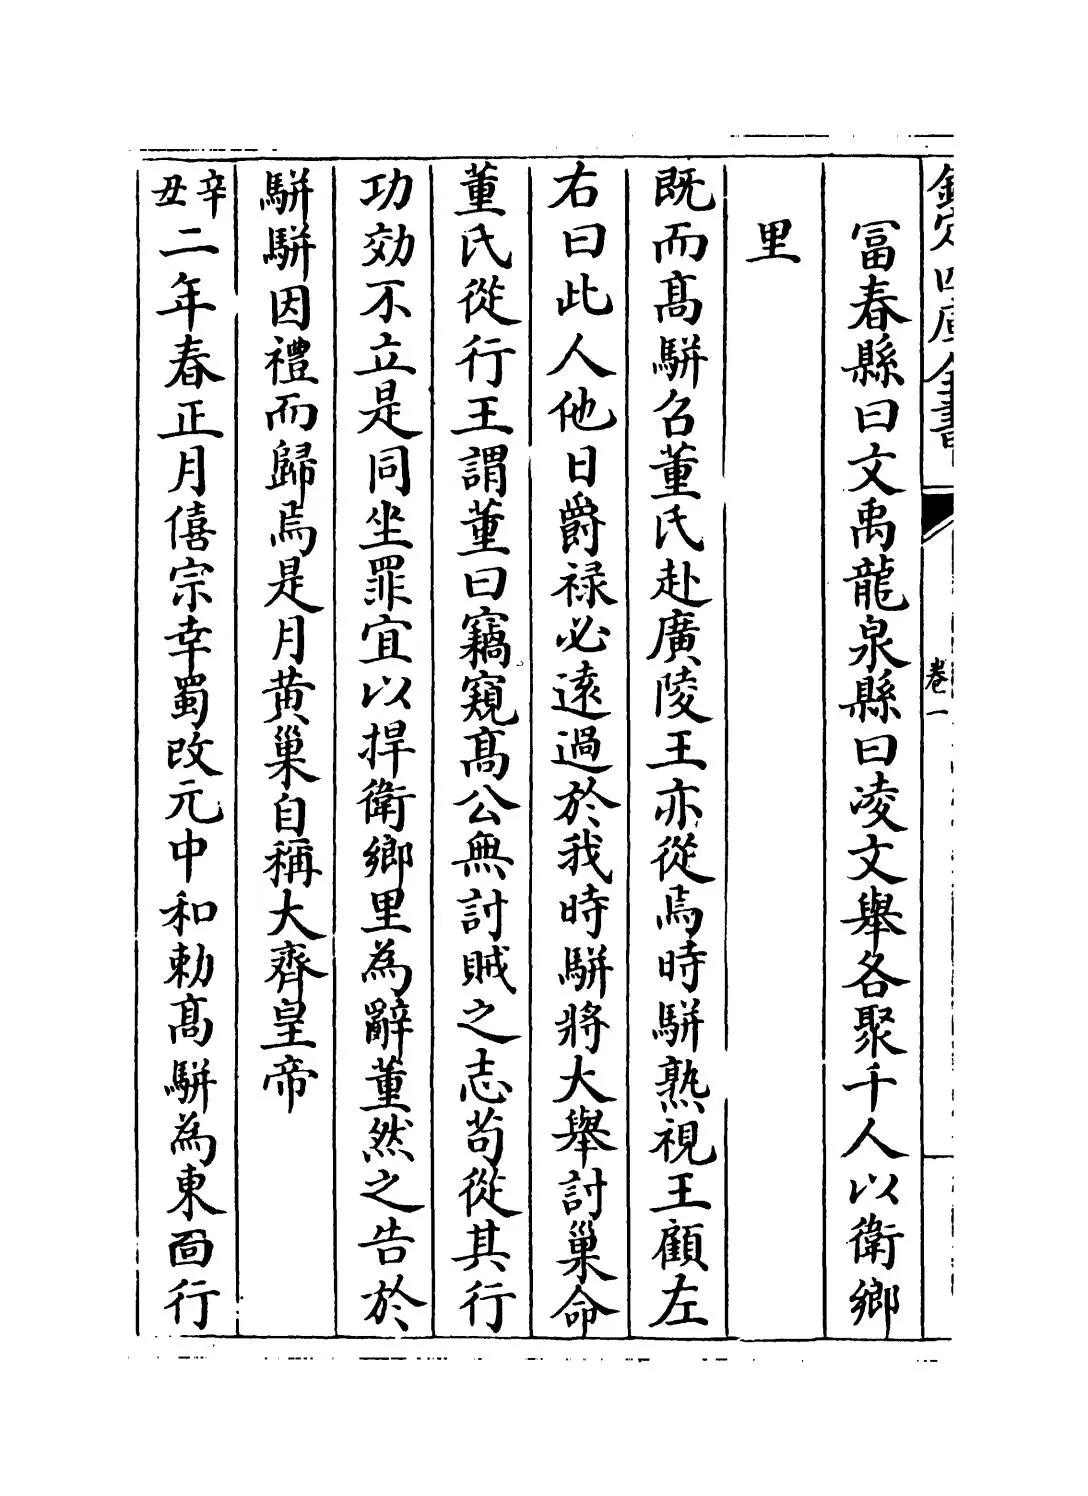 欽定四庫全書
卷一
冨春縣曰文禹龍泉縣曰凌文舉各聚千人以衛鄉
里
既而髙駢召董氏赴廣陵王亦從焉時駢熟視王顧左
右曰此人他日爵禄必遠過於我時駢將大舉討巢命
董氏從行王謂董曰竊窺髙公無討賊之志茍從其行
功効不立是同坐罪宜以捍衛鄉里為辭董然之告於
駢駢因禮而歸焉是月黄巢自稱大齊皇帝
辛丑二年春正月僖宗幸蜀改元中和勅髙駢為東面行